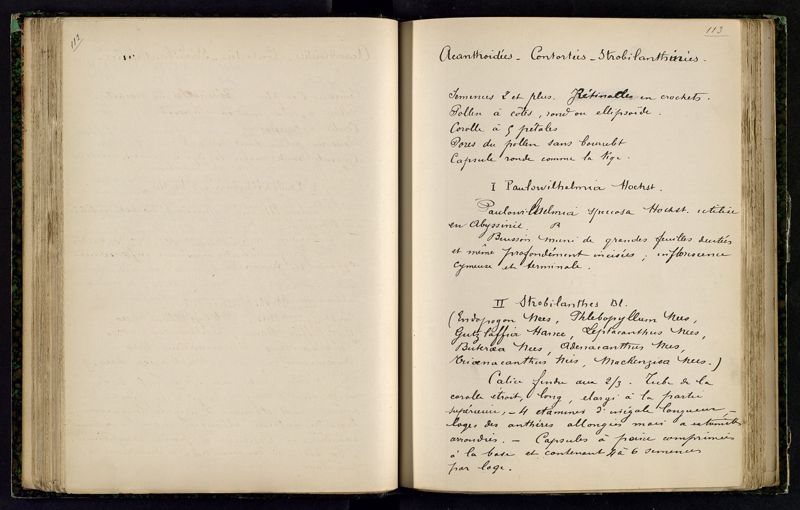 113
113
Acanthoidées - Contortées - Strobilanthinées.
Semences 2 et plus. Rétinacles en crochets.
Pollen à côtes, rond ou ellipsoïde.
Corolle à 5 pétales
Pores du pollen sans bourrelet
Capsule ronde comme la tige.
I Paulowilhelmia Hochst.
Paulowilhelmia speciosa Hochst. utilisé
en Abyssinie. B
Buisson muni de grandes feuilles dentées
et même profondément incisées ; inflorescence
cymeuse et terminale.
II Strobilanthes Bl.
(Endopogon Nees, Phlebopyllum Nees,
Gutzlaffia Hance, Leptacanthus Nees,
Buteraea Nees, Adenacanthus Nees,
Triaenacanthus Nees, Mackenziea Nees.)
Calice fendu aux 2/3. Tube de la
corolle étroit, long, élargi à la partie
supérieure, - 4 étamines d'inégale longueur, -
loges des anthères allongées mais
arrondies. - Capsules à peine comprimées
à la base et contenant 4 à 6 semences
par loge.